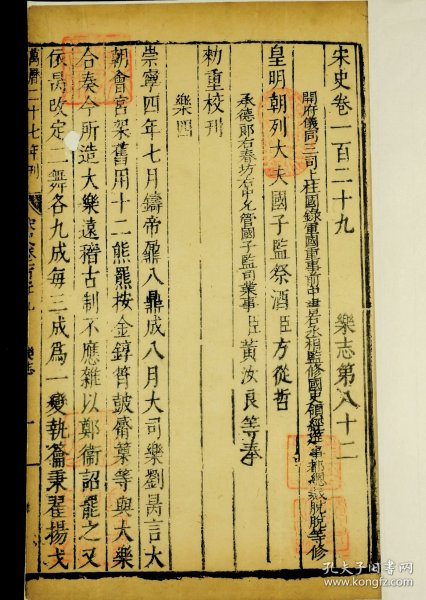 宋史卷一百二十九　樂志第八十二
開府儀同三司上柱國錄軍國重事前中書右丞相監修國史領經筵事都總裁脫脫等修
皇明朝列大夫國子監祭酒臣方從哲
承德郎右春坊右中允管國子監司業事臣黃汝良等奉
勑重校刊
樂四
崇寧四年七月鑄帝鼐八鼎成八月大司樂劉昺言大
朝會宮架舊用十二熊羆按金錞簫鼓觱篥等與大樂
合奏今所造大樂遠稽古制不應雜以鄭衞詔罷之又
依昺改定二舞各九成每三成爲一變執籥秉翟揚戈
萬曆二十七年刊
樂志
孔夫子旧书网
www.kongfz.com